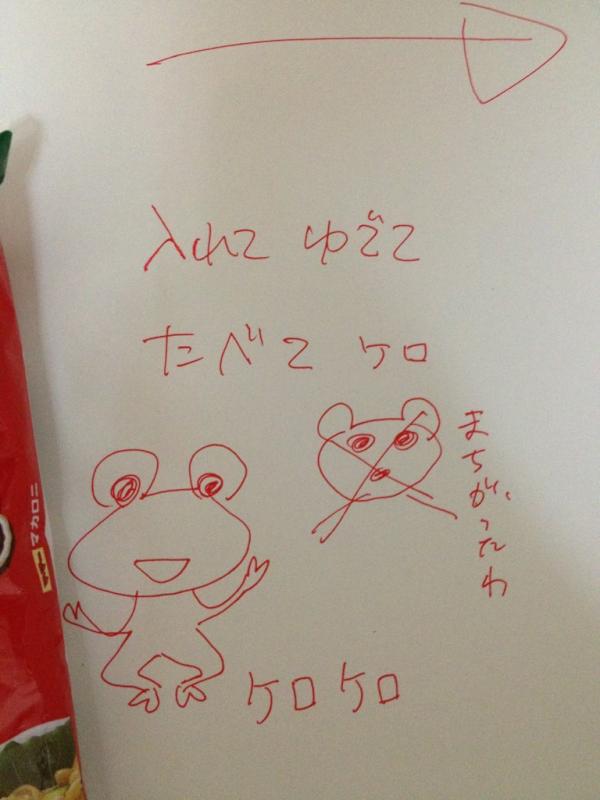 入れて ゆでて
たべて ケロ
まちがったわ
ケロケロ
マカロニ